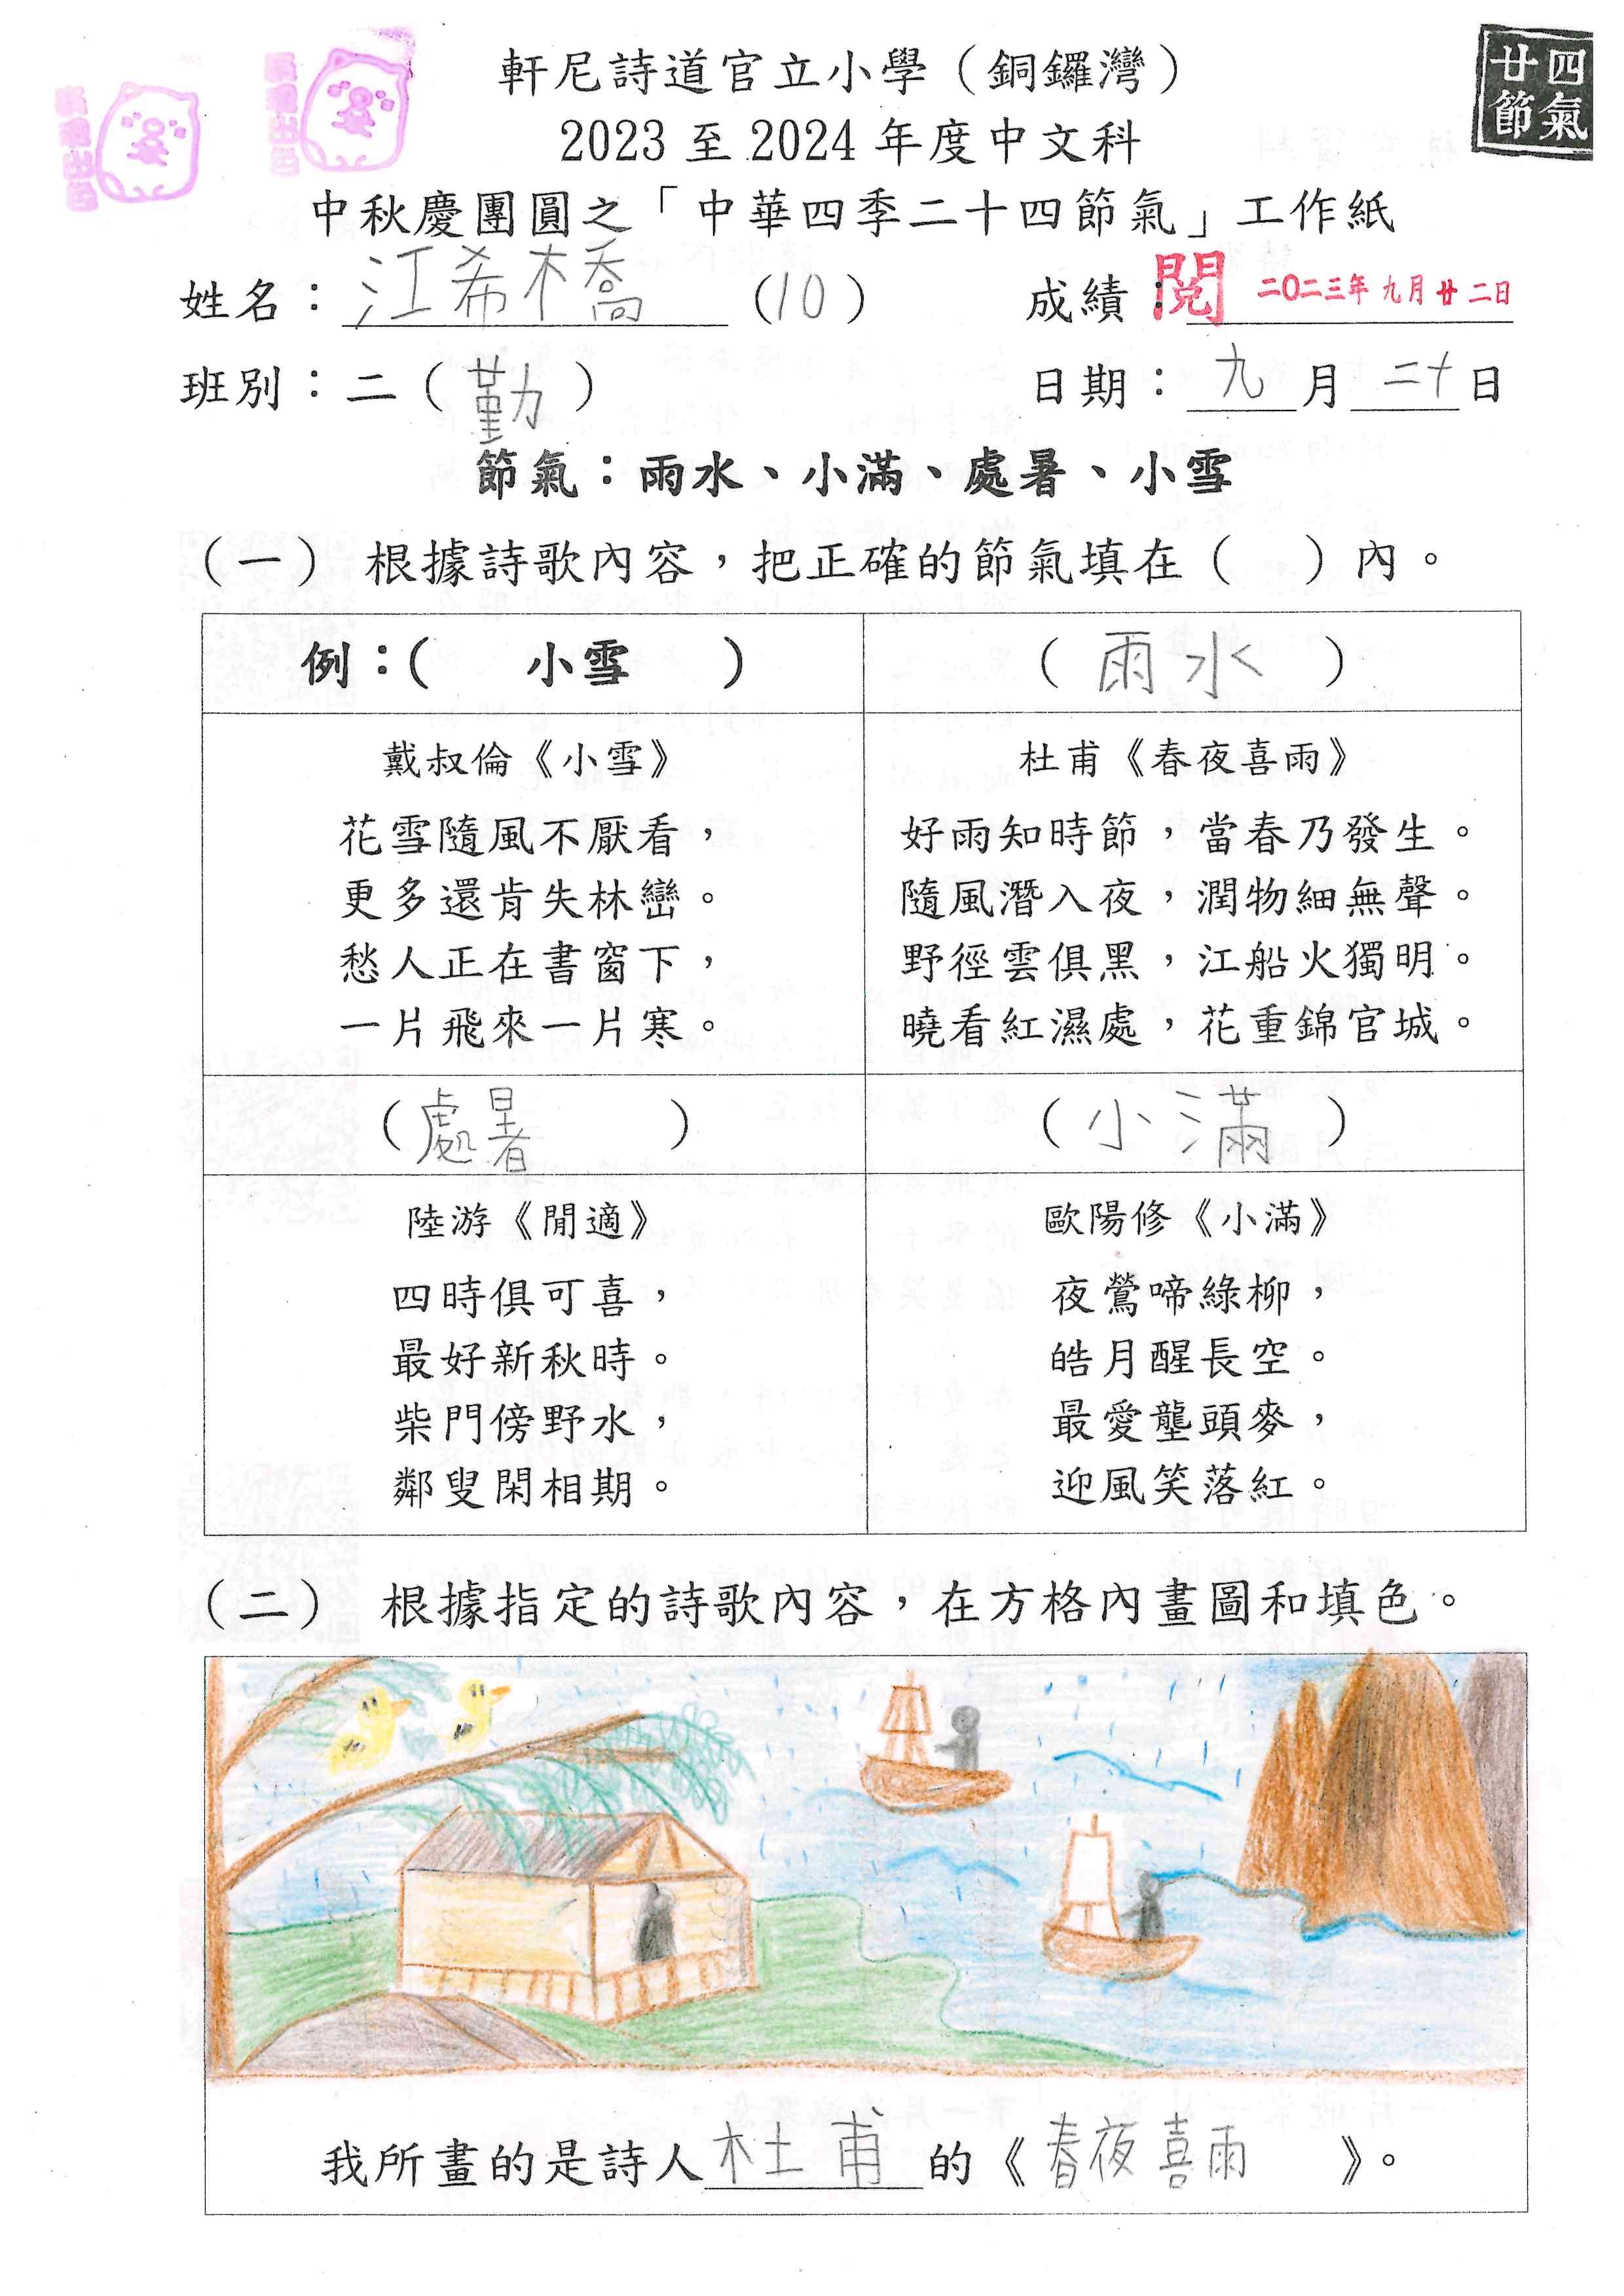 廿四節氣
軒尼詩道官立小學（銅鑼灣）
2023 至 2024 年度中文科
中秋慶團圓之「中華四季二十四節氣」工作紙
姓名：江希橋（10） 成績：閱 二〇二三年九月廿二日
班別：二（勤） 日期：九月二十日
節氣：雨水、小滿、處暑、小雪
（一） 根據詩歌內容，把正確的節氣填在（ ）內。
例：( 小雪 )
（雨水）
戴叔倫《小雪》
花雪隨風不厭看，
更多還肯失林巒。
愁人正在書窗下，
一片飛來一片寒。
杜甫《春夜喜雨》
好雨知時節，當春乃發生。
隨風潛入夜，潤物細無聲。
野徑雲俱黑，江船火獨明。
曉看紅濕處，花重錦官城。
（處暑）
（小滿）
陸游《閒適》
四時俱可喜，
最好新秋時。
柴門傍野水，
鄰叟閑相期。
歐陽修《小滿》
夜鶯啼綠柳，
皓月醒長空。
最愛壟頭麥，
迎風笑落紅。
（二） 根據指定的詩歌內容，在方格內畫圖和填色。
我所畫的是詩人杜甫的《春夜喜雨》。